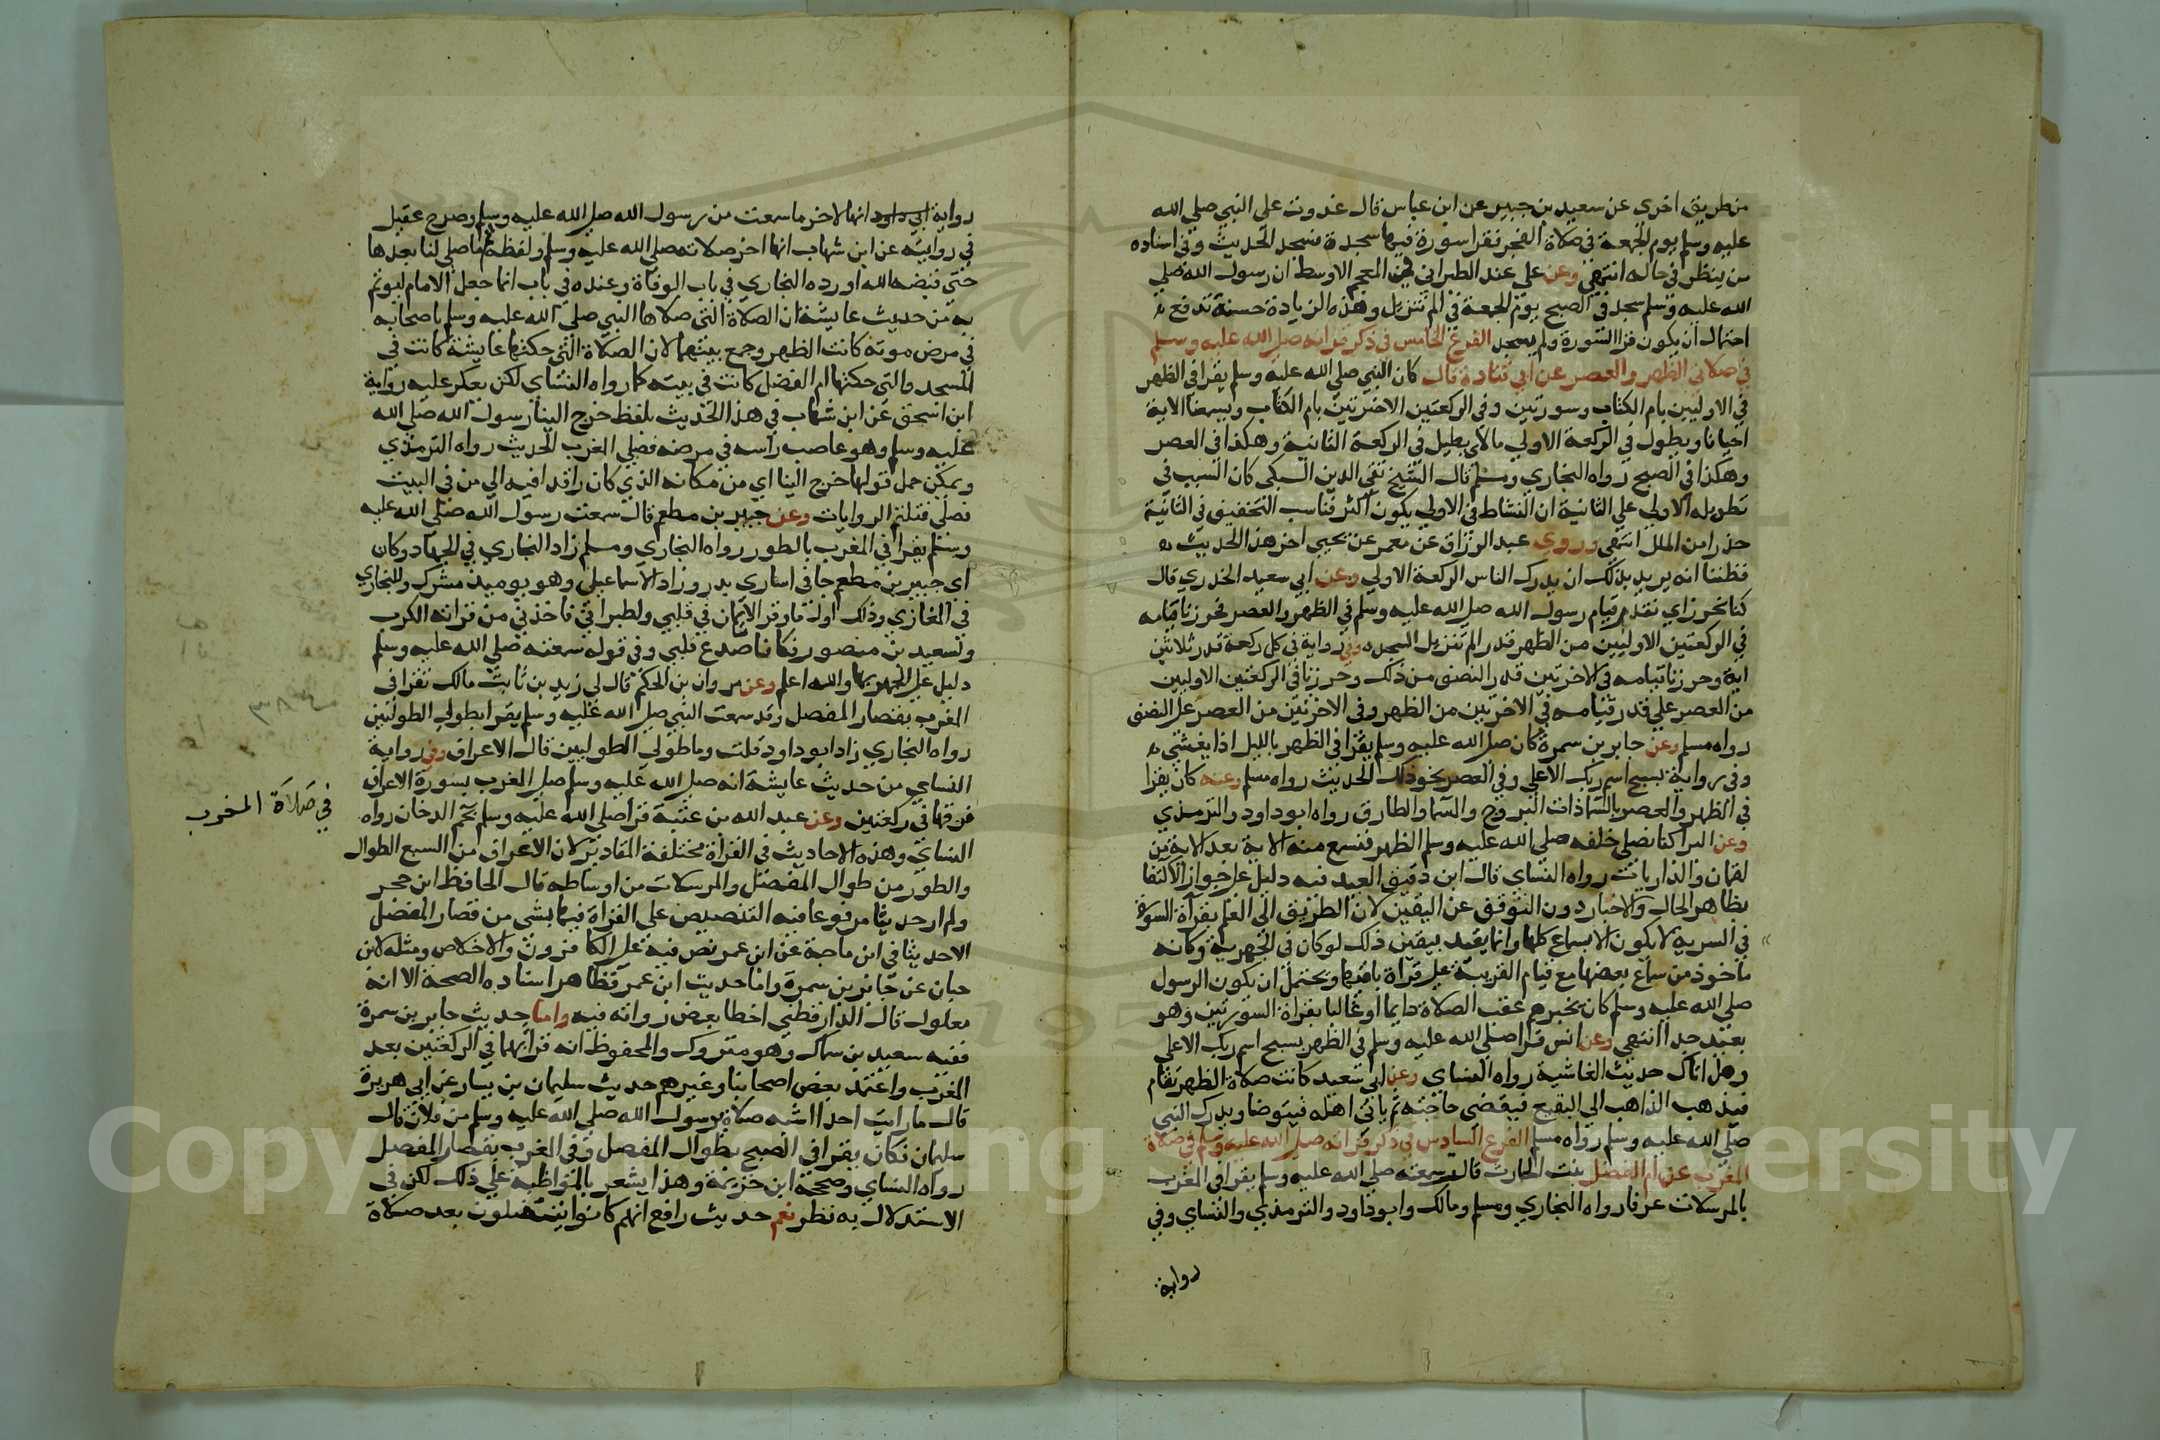 من طريق اخرى عن سعيد بن جبير عن ابن عباس قال غدوت على النبي صلى الله
عليه وسلم يوم الجمعة في صلاة الفجر فقرا سورة فيها سجدة فسجد الحديث وفي اسناده
من ينظر في حاله انتهى وعن علي عند الطبراني في المعجم الاوسط ان رسول الله صلى
الله عليه وسلم سجد في الصبح يوم الجمعة في الم تنزيل وهذه الزيادة حسنة تدفع
احتمال ان يكون قرا السورة ولم يسجد الفرع الخامس في ذكر قراته صلى الله عليه وسلم
في صلاتي الظهر والعصر عن ابي قتادة قال كان النبي صلى الله عليه وسلم يقرا في الظهر
في الاوليين بام الكتاب وسورتين وفي الركعتين الاخرتين بام الكتاب ويسمعنا الاية
احيانا ويطول في الركعة الاولى مالا يطيل في الركعة الثانية وهكذا في العصر
وهكذا في الصبح رواه البخاري ومسلم قال الشيخ تقي الدين السبكي كان السبب في
تطويله الاولى على الثانية ان النشاط في الاولى يكون اكثر فناسب التخفيف في الثانية
حذرا من الملل انتهى وروى عبد الرزاق عن معمر عن يحيى اخر هذا الحديث
فظننا انه يريد بذلك ان يدرك الناس الركعة الاولى وعن ابي سعيد الخدري قال
كنا نحرز اي نقدر قيام رسول الله صلى الله عليه وسلم في الظهر والعصر فحرزنا قيامه
في الركعتين الاوليين من الظهر قدر الم تنزيل السجده وفي رواية في كل ركعة قدر ثلاثين
اية وحرزنا قيامه في الاخرتين قدر النصف من ذلك وحرزنا في الركعتين الاوليين
من العصر على قدر قيامه في الاخرتين من الظهر وفي الاخرتين من العصر على النصف
رواه مسلم وعن جابر بن سمرة كان صلى الله عليه وسلم يقرا في الظهر بالليل اذا يغشى
وفي رواية بسبح اسم ربك الاعلى وفي العصر نحو ذلك الحديث رواه مسلم وعنه كان يقرا
في الظهر والعصر بالسما ذات البروج والسما والطارق رواه ابو داود والترمذي
وعن البرا كنا نصلي خلفه صلى الله عليه وسلم الظهر فنسمع منه الاية بعد الاية من
لقمان والذاريات رواه النساي قال ابن دقيق العيد فيه دليل على جواز الاكتفا
بظاهر الحال والاخبار دون التوقف عن اليقين لان الطريق الى العلم بقراة السورة
في السرية لا يكون الا بسماع كلها وانما يفيد بيقين ذلك لو كان في الجهرية وكانه
ماخوذ من سماع بعضها مع قيام القرينة على قراة باقيها ويحتمل ان يكون الرسول
صلى الله عليه وسلم كان يخبرهم عقب الصلاة دايما او غالبا بقراة السورتين وهو
بعيد جدا انتهى وعن انس قرا صلى الله عليه وسلم في الظهر بسبح اسم ربك الاعلى
وهل اتاك حديث الغاشية رواه النساي وعن ابي سعيد كانت صلاة الظهر تقام
فيذهب الذاهب الى البقيع فيقضي حاجته ثم ياتي اهله فيتوضا ويدرك النبي
صلى الله عليه وسلم رواه مسلم الفرع السادس في ذكر قراته صلى الله عليه وسلم في صلاة
المغرب عن ام الفضل بنت الحارث قالت سمعته صلى الله عليه وسلم يقرا في المغرب
بالمرسلات عرفا رواه البخاري ومسلم ومالك وابو داود والترمذي والنساي وفي
رواية
رواية ابي داود انها لاخر ما سمعت من رسول الله صلى الله عليه وسلم وصرح عقيل
في روايته عن ابن شهاب انها اخر صلاته صلى الله عليه وسلم ولفظه ثم ما صلى لنا بعدها
حتى قبضه الله اورده البخاري في باب الوفاة وعنده في باب انما جعل الامام ليوتم
به من حديث عايشة ان الصلاة التي صلاها النبي صلى الله عليه وسلم باصحابه
في مرض موته كانت الظهر وجمع بينهما لان الصلاة التي حكتها عايشة كانت في
المسجد والتي حكتها ام الفضل كانت في بيته كما رواه النساي لكن يعكر عليه رواية
ابن اسحق عن ابن شهاب في هذا الحديث بلفظ خرج الينا رسول الله صلى الله
عليه وسلم وهو عاصب راسه في مرضه فصلى المغرب الحديث رواه الترمذي
ويمكن حمل قولها خرج الينا اي من مكانه الذي كان راقدا فيه الى من في البيت
فصلى فتلتم الروايات وعن جبير بن مطعم قال سمعت رسول الله صلى الله عليه
وسلم يقرا في المغرب بالطور رواه البخاري ومسلم زاد البخاري في الجهاد وكان
اي جبير بن مطعم جا في اسارى بدر وزاد الاسماعيلي وهو يوميذ مشرك وللبخاري
في المغازي وذلك اول ما وقر الايمان في قلبي ولطبراني فاخذني من قراته الكرب
ولسعيد بن منصور فكانما صدع قلبي وفي قوله سمعته صلى الله عليه وسلم
دليل على الجهر بها والله اعلم وعن مروان بن الحكم قال لي زيد بن ثابت مالك تقرا في
المغرب بقصار المفصل وقد سمعت النبي صلى الله عليه وسلم يقرا بطولى الطوليين
رواه البخاري زاد ابو داود قلت وما طولى الطوليين قال الاعراف وفي رواية
النساي من حديث عايشة انه صلى الله عليه وسلم صلى المغرب بسورة الاعراف
فرقها في ركعتين وعن عبد الله بن عتبة قرا صلى الله عليه وسلم بحم الدخان رواه
النساي وهذه الاحاديث في القراة مختلفة المقادير لان الاعراف من السبع الطوال
والطور من طوال المفصل والمرسلات من اوساطه قال الحافظ ابن حجر
ولم ار حديثا مرفوعا فيه التنصيص على القراة فيها بشي من قصار المفصل
الا حديثا في ابن ماجة عن ابن عمر نص فيه على الكافرون والاخلاص ومثله لابن
حبان عن جابر بن سمرة واما حديث ابن عمر فظاهر اسناده الصحة الا انه
معلول قال الدارقطني اخطا بعض رواته فيه واما حديث جابر بن سمرة
ففيه سعيد بن سماك وهو متروك والمحفوظ انه قرابهما في الركعتين بعد
المغرب واعتمد بعض اصحابنا وغيرهم حديث سليمان بن يسار عن ابي هريرة
قال ما رايت احدا اشبه صلاة برسول الله صلى الله عليه وسلم من فلان قال
سليمان فكان يقرا في الصبح بطوال المفصل وفي المغرب بقصار المفصل
رواه النساي وصححه ابن خزيمة وهذا يشعر بالمواظبة على ذلك لكن في
الاستدلال به نظر نعم حديث رافع انهم كانوا ينتضلون بعد صلاة
في صلاة المغرب